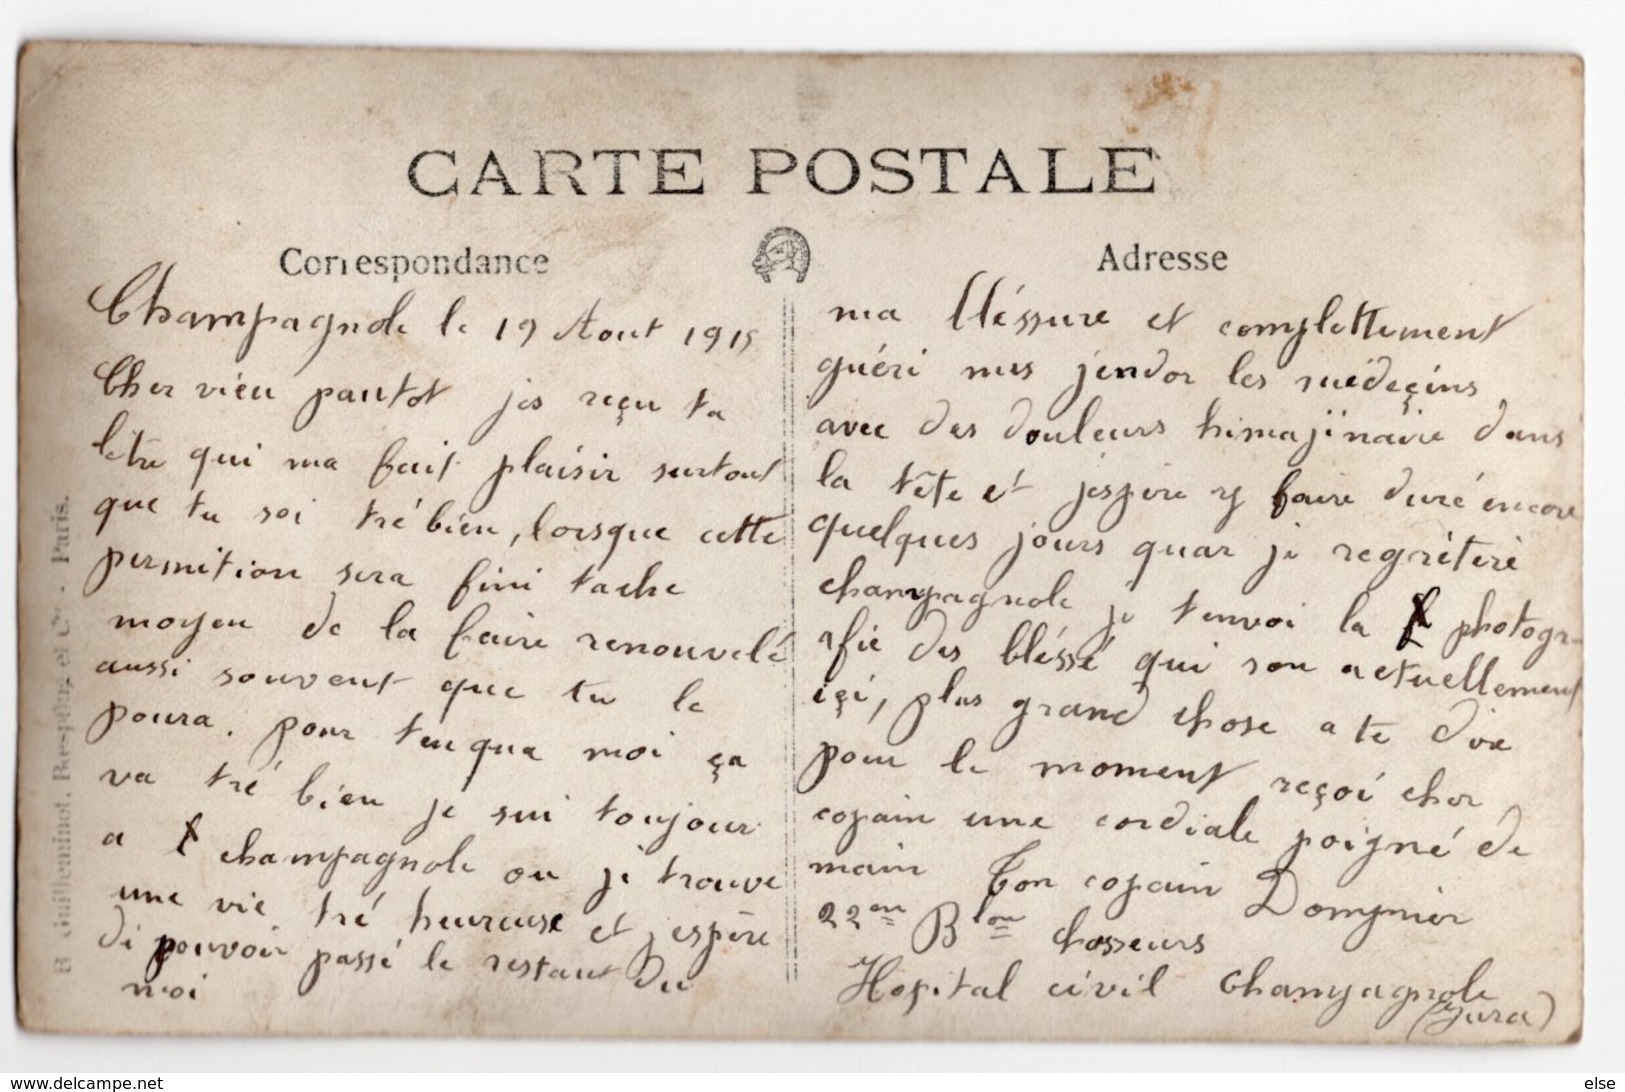 CARTE POSTALE
Correspondance
Adresse
Champagnole le 19 Aout 1915
Cher vieu pautot jes reçu ta
letre qui ma fait plaisir surtout
que tu soi tré bien, lorsque cette
permition sera fini tache
moyen de la faire renouvelé
aussi souvent que tu le
poura. pour ten qua moi ça
va tré bien je sui toujour
a champagnole ou je trouve
une vie tré heureuse et jespère
di pouvoir passé le restant du
moi
ma bléssure et complettement
guéri mes jendor les médeçins
avec des douleurs himajinaire dans
la tête et jespire y faire duré encore
quelques jours quar je regréteré
champagnole je tenvoi la photogr-
afie des bléssé qui son actuellement
içi, plus grand chose a te dire
pour le moment reçoi cher
copain une cordiale poigné de
main Ton copain Dompnier
22em Blon chasseurs
Hopital civil Champagnole
(Jura)
R. Guilleminot, Bœspflug et Cie. - Paris.
www.delcampe.net
else